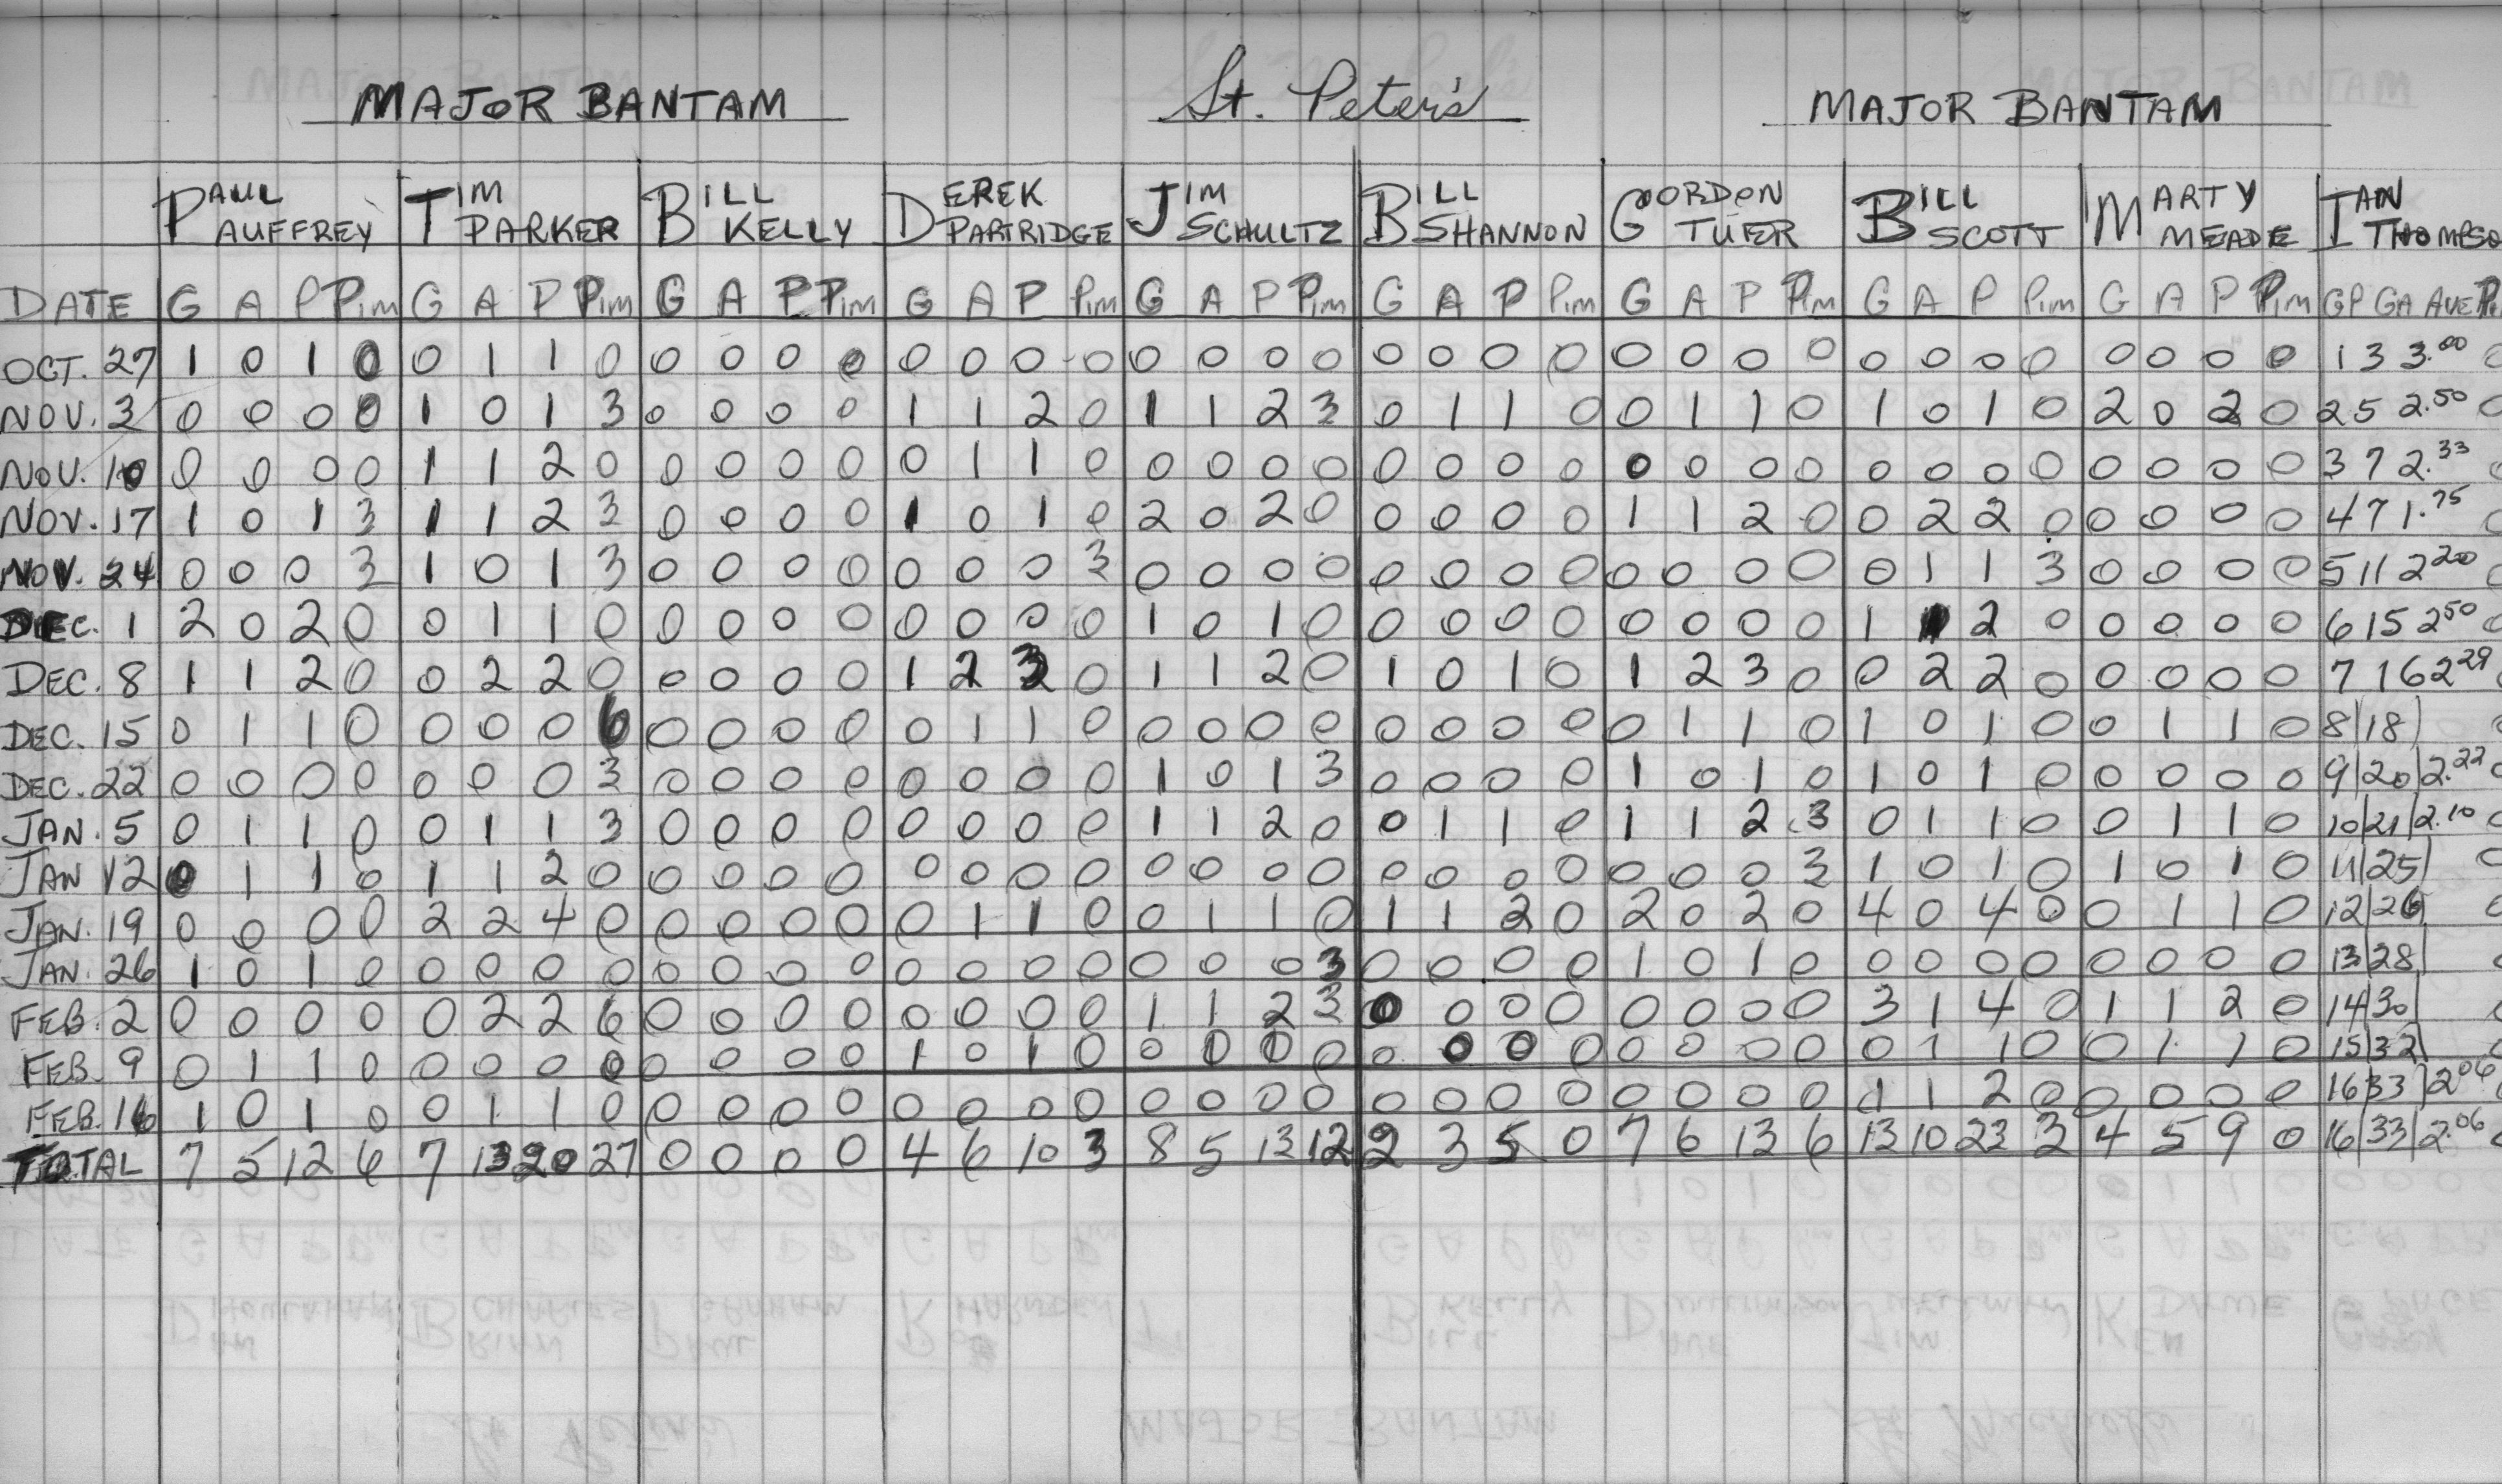 MAJOR BANTAM St. Peter's MAJOR BANTAM
PAUL AUFFREY TIM PARKER BILL KELLY DEREK PARTRIDGE JIM SCHULTZ BILL SHANNON GORDON TUER BILL SCOTT MARTY MEADE IAN THOMPSO
DATE G A P PIM G A P PIM G A P PIM G A P PIM G A P PIM G A P PIM G A P PIM G A P PIM G A P PIM GP GA AVE
OCT. 27 1 0 1 0 0 1 1 0 0 0 0 0 0 0 0 0 0 0 0 0 0 0 0 0 0 0 0 0 0 0 0 0 0 0 0 0 1 3 3.00
NOV. 3 0 0 0 0 1 0 1 3 0 0 0 0 1 1 2 0 1 1 2 3 0 1 1 0 0 1 1 0 1 0 1 0 2 0 2 0 2 5 2.50
NOV. 10 0 0 0 0 1 1 2 0 0 0 0 0 0 1 1 0 0 0 0 0 0 0 0 0 0 0 0 0 0 0 0 0 0 0 0 0 3 7 2.33
NOV. 17 1 0 1 3 1 1 2 3 0 0 0 0 1 0 1 0 2 0 2 0 0 0 0 0 1 1 2 0 0 2 2 0 0 0 0 0 4 7 1.75
NOV. 24 0 0 0 3 1 0 1 3 0 0 0 0 0 0 0 3 0 0 0 0 0 0 0 0 0 0 0 0 0 1 1 3 0 0 0 0 5 11 2 20
DEC. 1 2 0 2 0 0 1 1 0 0 0 0 0 0 0 0 0 1 0 1 0 0 0 0 0 0 0 0 0 1 1 2 0 0 0 0 0 6 15 2 50
DEC. 8 1 1 2 0 0 2 2 0 0 0 0 0 1 2 3 0 1 1 2 0 1 0 1 0 1 2 3 0 0 2 2 0 0 0 0 0 7 16 2 29
DEC. 15 0 1 1 0 0 0 0 6 0 0 0 0 0 1 1 0 0 0 0 0 0 0 0 0 0 1 1 0 1 0 1 0 0 1 1 0 8 18
DEC. 22 0 0 0 0 0 0 0 3 0 0 0 0 0 0 0 0 1 0 1 3 0 0 0 0 1 0 1 0 1 0 1 0 0 0 0 0 9 20 2.22
JAN. 5 0 1 1 0 0 1 1 3 0 0 0 0 0 0 0 0 1 1 2 0 0 1 1 0 1 1 2 3 0 1 1 0 0 1 1 0 10 21 2.10
JAN 12 0 1 1 0 1 1 2 0 0 0 0 0 0 0 0 0 0 0 0 0 0 0 0 0 0 0 0 3 1 0 1 0 1 0 1 0 11 25
JAN. 19 0 0 0 0 2 2 4 0 0 0 0 0 0 1 1 0 0 1 1 0 1 1 2 0 2 0 2 0 4 0 4 0 0 1 1 0 12 26
JAN. 26 1 0 1 0 0 0 0 0 0 0 0 0 0 0 0 0 0 0 0 3 0 0 0 0 1 0 1 0 0 0 0 0 0 0 0 0 13 28
FEB. 2 0 0 0 0 0 2 2 6 0 0 0 0 0 0 0 0 1 1 2 3 0 0 0 0 0 0 0 0 3 1 4 0 1 1 2 0 14 30
FEB. 9 0 1 1 0 0 0 0 0 0 0 0 0 1 0 1 0 0 0 0 0 0 0 0 0 0 0 0 0 0 1 1 0 0 1 1 0 15 32
FEB. 16 1 0 1 0 0 1 1 0 0 0 0 0 0 0 0 0 0 0 0 0 0 0 0 0 0 0 0 0 1 1 2 0 0 0 0 0 16 33 2 06
TOTAL 7 5 12 6 7 13 20 27 0 0 0 0 4 6 10 3 8 5 13 12 2 3 5 0 7 6 13 6 13 10 23 3 4 5 9 0 16 33 2.06